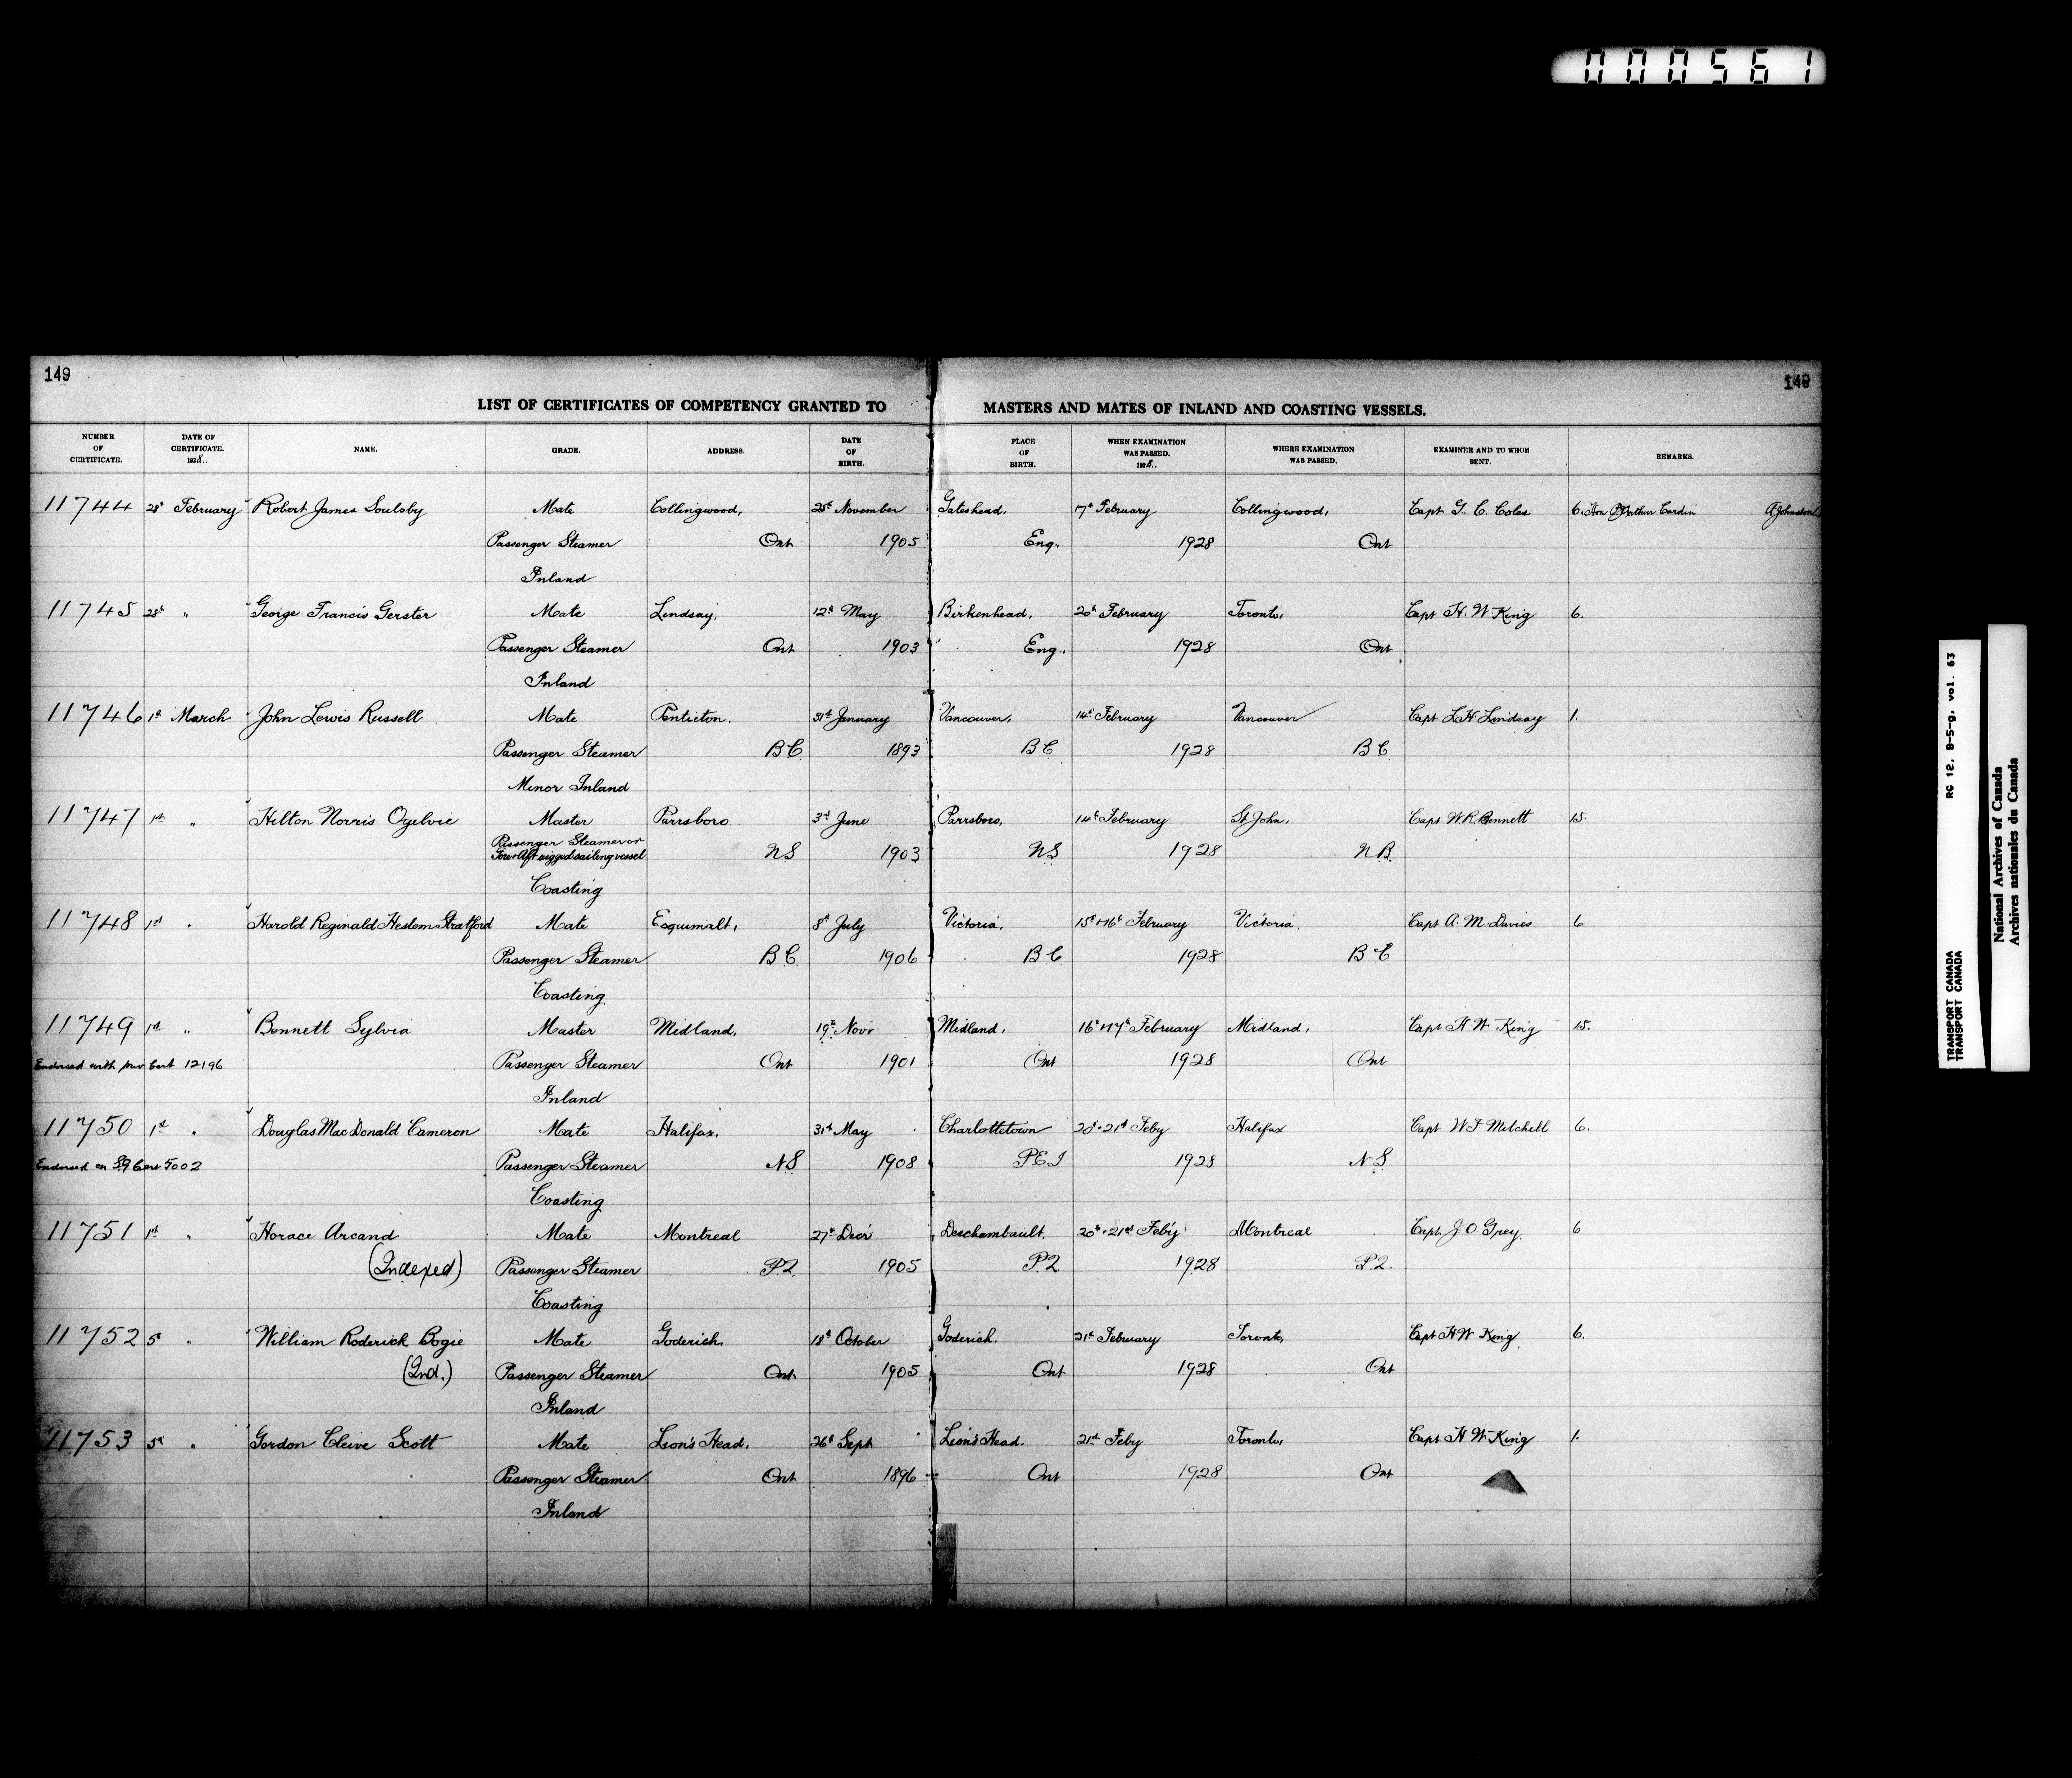 000561
149
149
LIST OF CERTIFICATES OF COMPETENCY GRANTED TO MASTERS AND MATES OF INLAND AND COASTING VESSELS.
NUMBER OF CERTIFICATE. DATE OF CERTIFICATE. 1928.. NAME. GRADE. ADDRESS. DATE OF BIRTH. PLACE OF BIRTH. WHEN EXAMINATION WAS PASSED. 1928.. WHERE EXAMINATION WAS PASSED. EXAMINER AND TO WHOM SENT. REMARKS.
11744 28th February Robert James Soulsby Mate Collingwood, 25th November Gateshead, 17th February Collingwood, Capt G. C. Coles 6. Hon Arthur Cardin A Johnston
Passenger Steamer Ont 1905 Eng. 1928 Ont
Inland
11745 28th " George Francis Gerster Mate Lindsay, 12th May Birkenhead, 20th February Toronto, Capt H. W King 6.
Passenger Steamer Ont 1903 Eng. 1928 Ont
Inland
11746 1st March John Lewis Russell Mate Penticton, 31st January Vancouver, 14th February Vancouver Capt L H Lindsay 1.
Passenger Steamer B C 1893 B C 1928 B C
Minor Inland
11747 1st " Hilton Norris Ogilvie Master Parrsboro 3rd June Parrsboro, 14th February St John, Capt W. R. Bennett 15.
Passenger Steamer or
Fore & Aft rigged sailing vessel N S 1903 N S 1928 N B
Coasting
11748 1st " Harold Reginald Heslem Stratford Mate Esquimalt, 8th July Victoria, 15th & 16th February Victoria, Capt A. M Davies 6
Passenger Steamer B C 1906 B C 1928 B C
Coasting
11749 1st " Bennett Sylvia Master Midland, 19th Novr Midland, 16th & 17th February Midland, Capt H W King 15.
Endorsed with new Cert 12196 Passenger Steamer Ont 1901 Ont 1928 Ont
Inland
11750 1st " Douglas MacDonald Cameron Mate Halifax, 31st May Charlottetown 20th & 21st Feby Halifax Capt W F Mitchell 6.
Endorsed on S.G Cert 5002 Passenger Steamer N S 1908 P E I 1928 N S
Coasting
11751 1st " Horace Arcand Mate Montreal 27th Decr Deschambault, 20th & 21st Feby Montreal Capt. J O Grey. 6
(Indexed) Passenger Steamer P.Q. 1905 P.Q. 1928 P.Q.
Coasting
11752 5th " William Roderick Bogie Mate Goderich, 18th October Goderich, 21st February Toronto, Capt H W King 6.
(Ind.) Passenger Steamer Ont 1905 Ont 1928 Ont
Inland
11753 5th " Gordon Cleive Scott Mate Lion's Head, 26th Sept Lion's Head. 21st Feby Toronto, Capt H W King 1.
Passenger Steamer Ont 1896 Ont 1928 Ont
Inland
RG 12, B-5-g, vol. 63
TRANSPORT CANADA
TRANSPORT CANADA
National Archives of Canada
Archives nationales du Canada